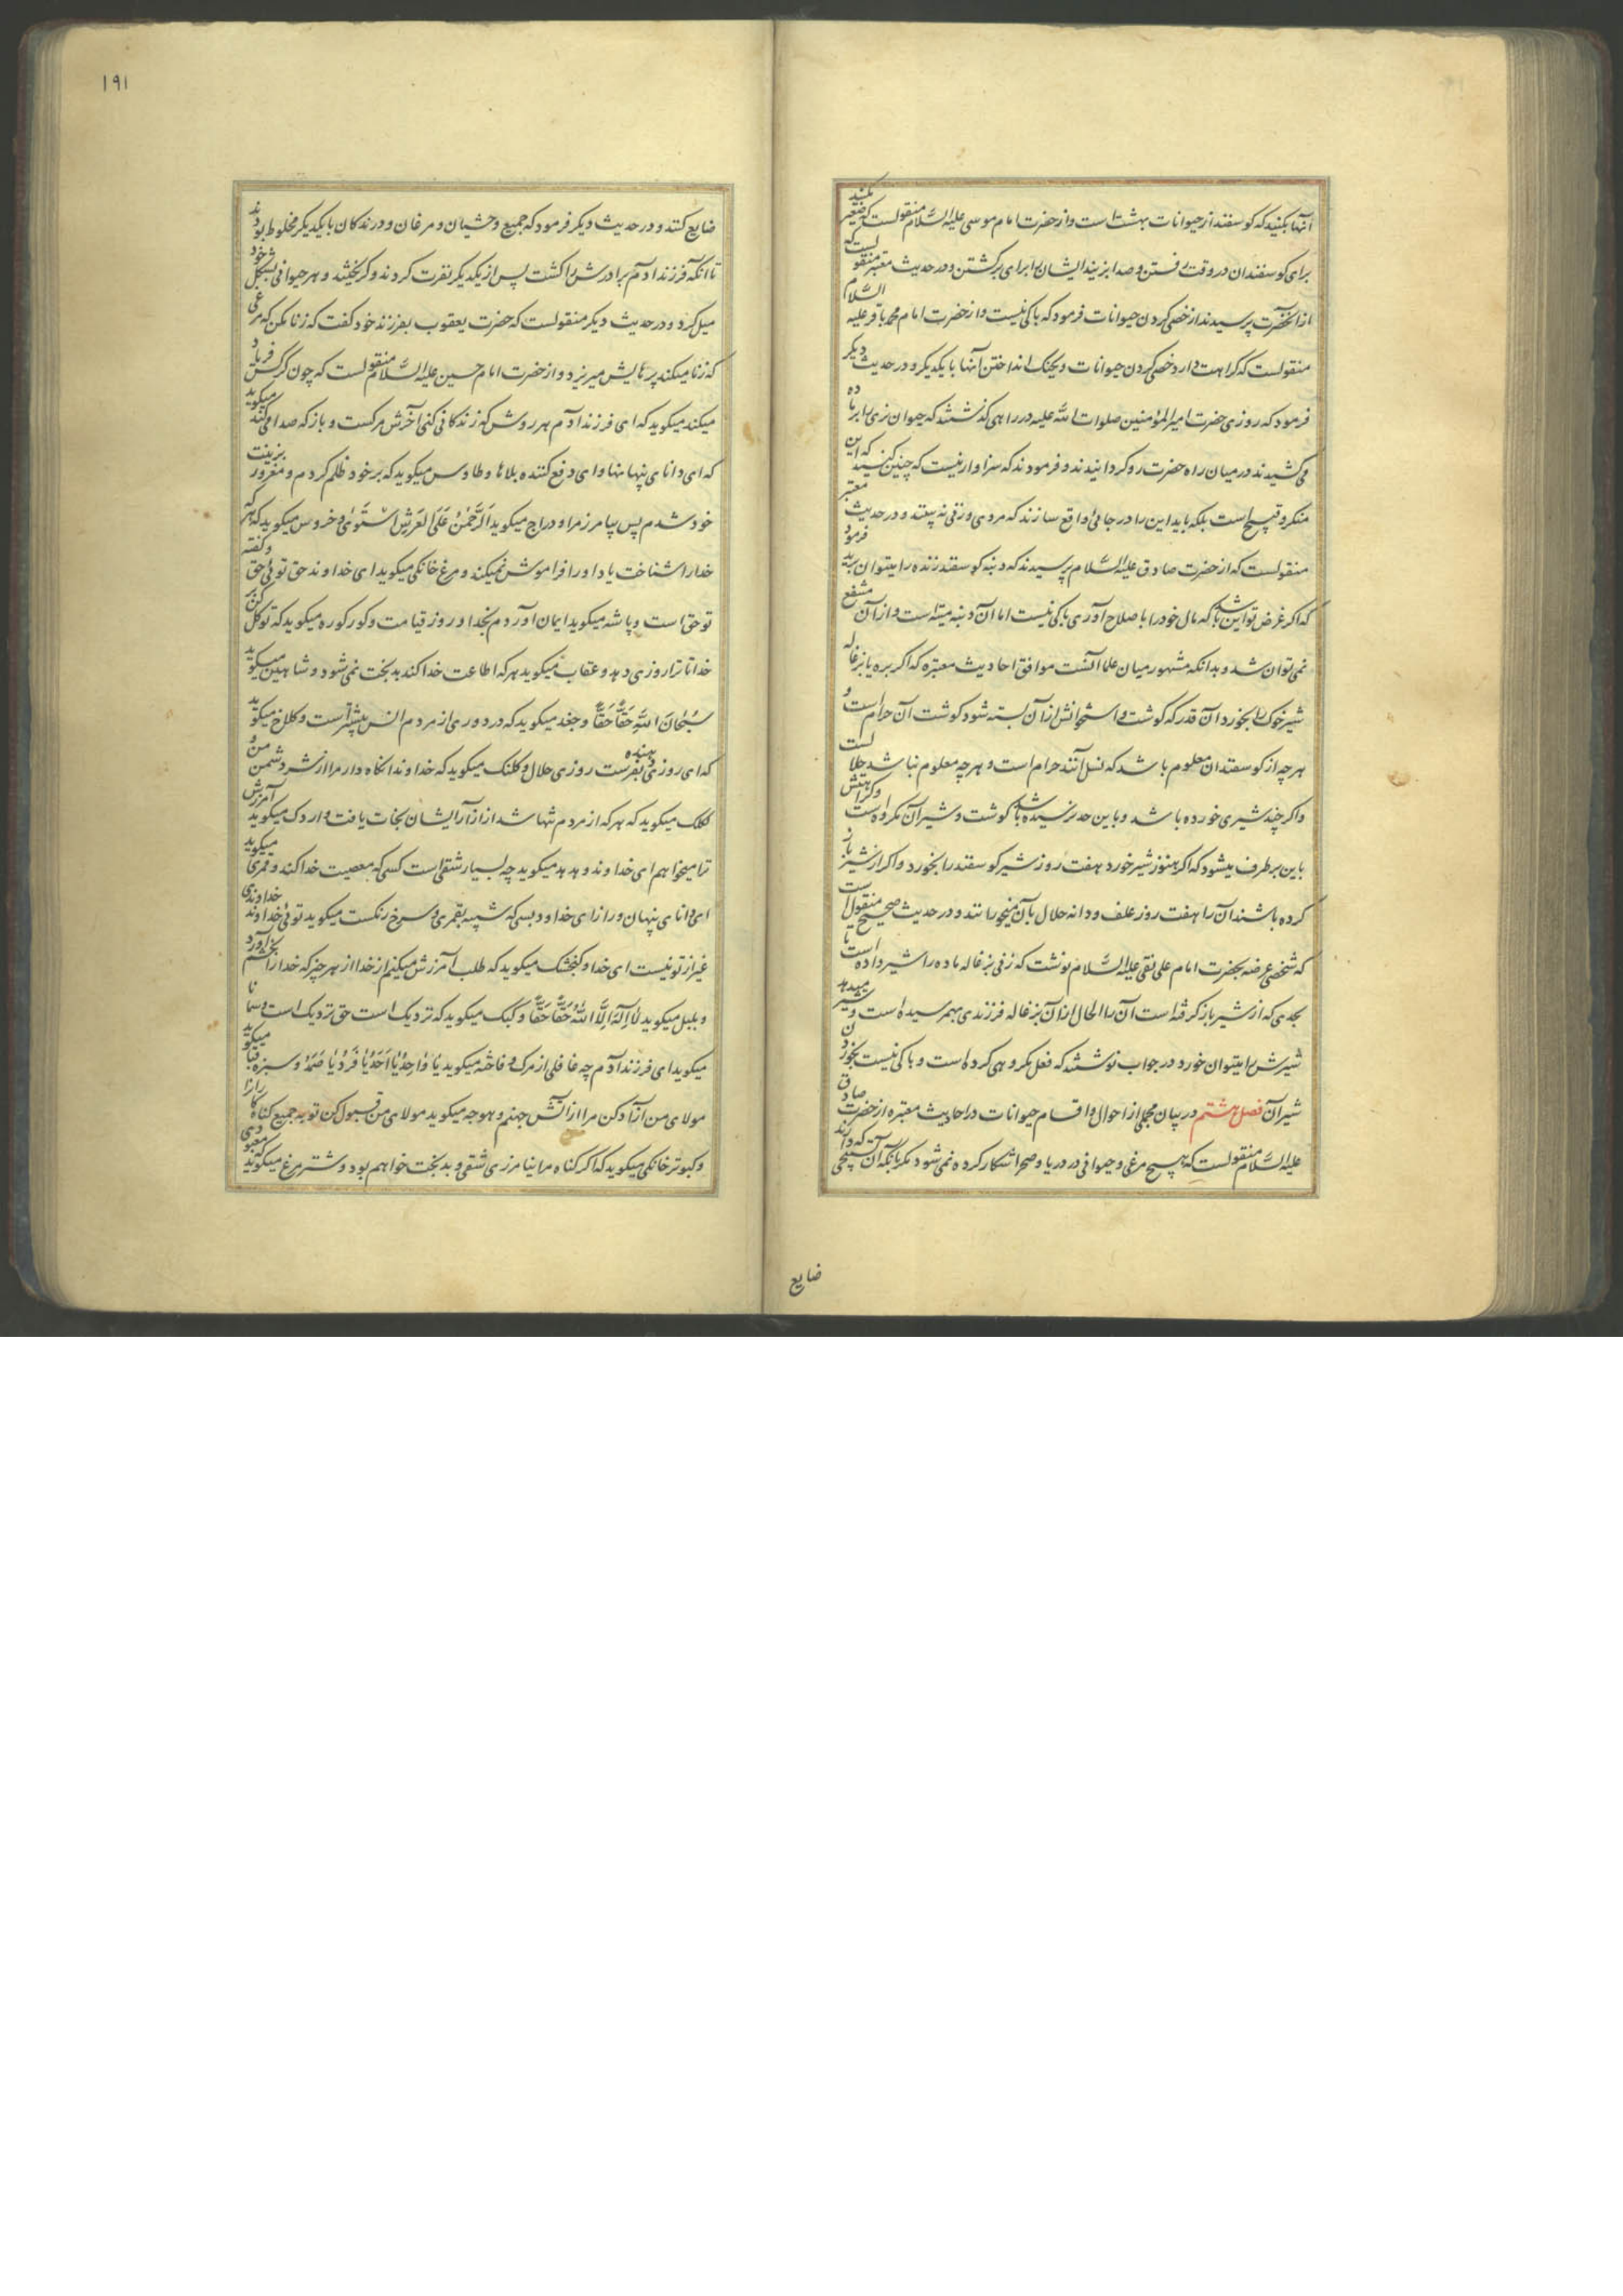 آنها بکنید که کوسفند از حیوانات بهشت است و از حضرت امام موسی علیه السلام منقولست که صفیر مکنید
برای کوسفندان در وقت رفتن و صدا بزنید ایشان را برای برکشتن و در حدیث معتبر منقولست که
از آنحضرت پرسیدند از خصی کردن حیوانات فرمود که باکی نیست و از حضرت امام محمد باقر علیه السلام
منقولست که کراهت دارد خصی کردن حیوانات و بجنک انداختن آنها با یکدیکر و در حدیث دیکر
فرمود که روزی حضرت امیرالمؤمنین صلوات الله علیه در راهی کذشتند که حیوان نری را بر ماده
می کشیدند در میان راه حضرت رو کردانیدند و فرمودند که سزاوار نیست که چنین کنید که این
منکر و قبیح است بلکه باید این را در جائی واقع سازند که مردی و زنی نه بیند و در حدیث معتبر
منقولست که از حضرت صادق علیه السلام پرسیدند که دنبه کوسفند زنده را میتوان برید فرمود
که اکر غرض تو این باشد که مال خود را باصلاح آوری باکی نیست اما آن دنبه میته است و از آن منتفع
نمی توان شد و بدانکه مشهور میان علما آنست موافق احادیث معتبره که اکر بره یا بزغاله
شیر خوک را بخورد آن قدر که کوشت و استخوانش از آن بسته شود کوشت آن حرام است و
هر چه از کوسفندان معلوم باشد که نسل آنند حرام است و هر چه معلوم نباشد حلالست
و اکر چند شیری خورده باشد و باین حد نرسیده باشد کوشت و شیر آن مکروه است و کراهتش
باین برطرف میشود که اکر هنوز شیر خورد هفت روز شیر کوسفند را بخورد و اکر از شیر باز
کرده باشند آن را هفت روز علف و دانه حلال بآن بخورانند و در حدیث صحیح منقول است
که شخصی عرضه بحضرت امام علی نقی علیه السلام نوشت که زنی بزغاله ماده را شیر داده است تا
بحدی که از شیر باز کرفته است آن را الحال از آن بزغاله فرزندی بهم رسیده است و شیر میدهد
شیرش را میتوان خورد در جواب نوشتند که فعل مکروهی کرده است و باکی نیست بخوردن
شیر آن فصل هشتم در بیان مجملی از احوال و اقسام حیوانات در احادیث معتبره از حضرت صادق
علیه السلام منقولست که هیچ مرغی و حیوانی در دریا و صحرا شکار کرده نمی شود مکر بآنکه آن تسبیحی که دارند
ضایع
۱۹۱
ضایع کنند و در حدیث دیکر فرمود که جمیع وحشیان و مرغان و درندکان با یکدیکر مخلوط بودند
تا آنکه فرزند آدم برادرش را کشت پس از یکدیکر نفرت کردند و کریختند و هر حیوانی بشکل خود
میل کرد و در حدیث دیکر منقولست که حضرت یعقوب بفرزند خود کفت که زنا مکن که مرغی
که زنا میکند پرهایش میریزد و از حضرت امام حسین علیه السلام منقولست که چون کرکس فریاد
میکند میکوید که ای فرزند آدم هر روش که زندکانی کنی آخرش مرکست و باز که صدا میکند میکوید
که ای دانای پنهانها و ای دفع کننده بلاها و طاوس میکوید که بر خود ظلم کردم و مغرور بزینت
خود شدم پس بیامرز مرا و دراج میکوید الرحمن علی العرش استوی و خروس میکوید که هر که
خدا را شناخت یاد او را فراموش نمیکند و مرغ خانکی میکوید ای خداوند حق توئی حق و کفته
تو حق است و باشه میکوید ایمان آوردم بخدا و روز قیامت و کورکوره میکوید که توکل کن بر
خدا تا ترا روزی دهد و عقاب میکوید هر که اطاعت خدا کند بدبخت نمی شود و شاهین میکوید
سبحان الله حقا حقا و جغد میکوید که در دوری از مردم انس بیشتر است و کلاغ میکوید
که ای روزی دهنده بفرست روزی حلال و کلنک میکوید که خداوندا نکاه دار مرا از شر دشمن من و
لکلک میکوید که هر که از مردم تنها شد از آزار ایشان نجات یافت و اردک میکوید آمرزش
ترا میخواهم ای خداوند و هدهد میکوید چه بسیار شقی است کسی که معصیت خدا کند و قمری میکوید
ای دانای پنهان و راز ای خدا و دبسی که شبیه بقمری و سرخ رنکست میکوید توئی خداوند خداوندی
غیر از تو نیست ای خدا و کنجشک میکوید که طلب آمرزش میکنم از خدا از هر چیز که خدا را بخشم آورد
و بلبل میکوید لا اله الا الله حقا حقا و کبک میکوید که نزدیک است حق نزدیک است و سمانا
میکوید ای فرزند آدم چه غافلی از مرک و فاخته میکوید یا واحد یا احد یا فرد یا صمد و سبزقبا میکوید
مولای من آزاد کن مرا از آتش جهنم و هوجه میکوید مولای من قبول کن توبه جمیع کناه کاران را
و کبوتر خانکی میکوید که اکر کناه مرا نیامرزی شقی و بدبخت خواهم بود و شترمرغ میکوید که معبودی